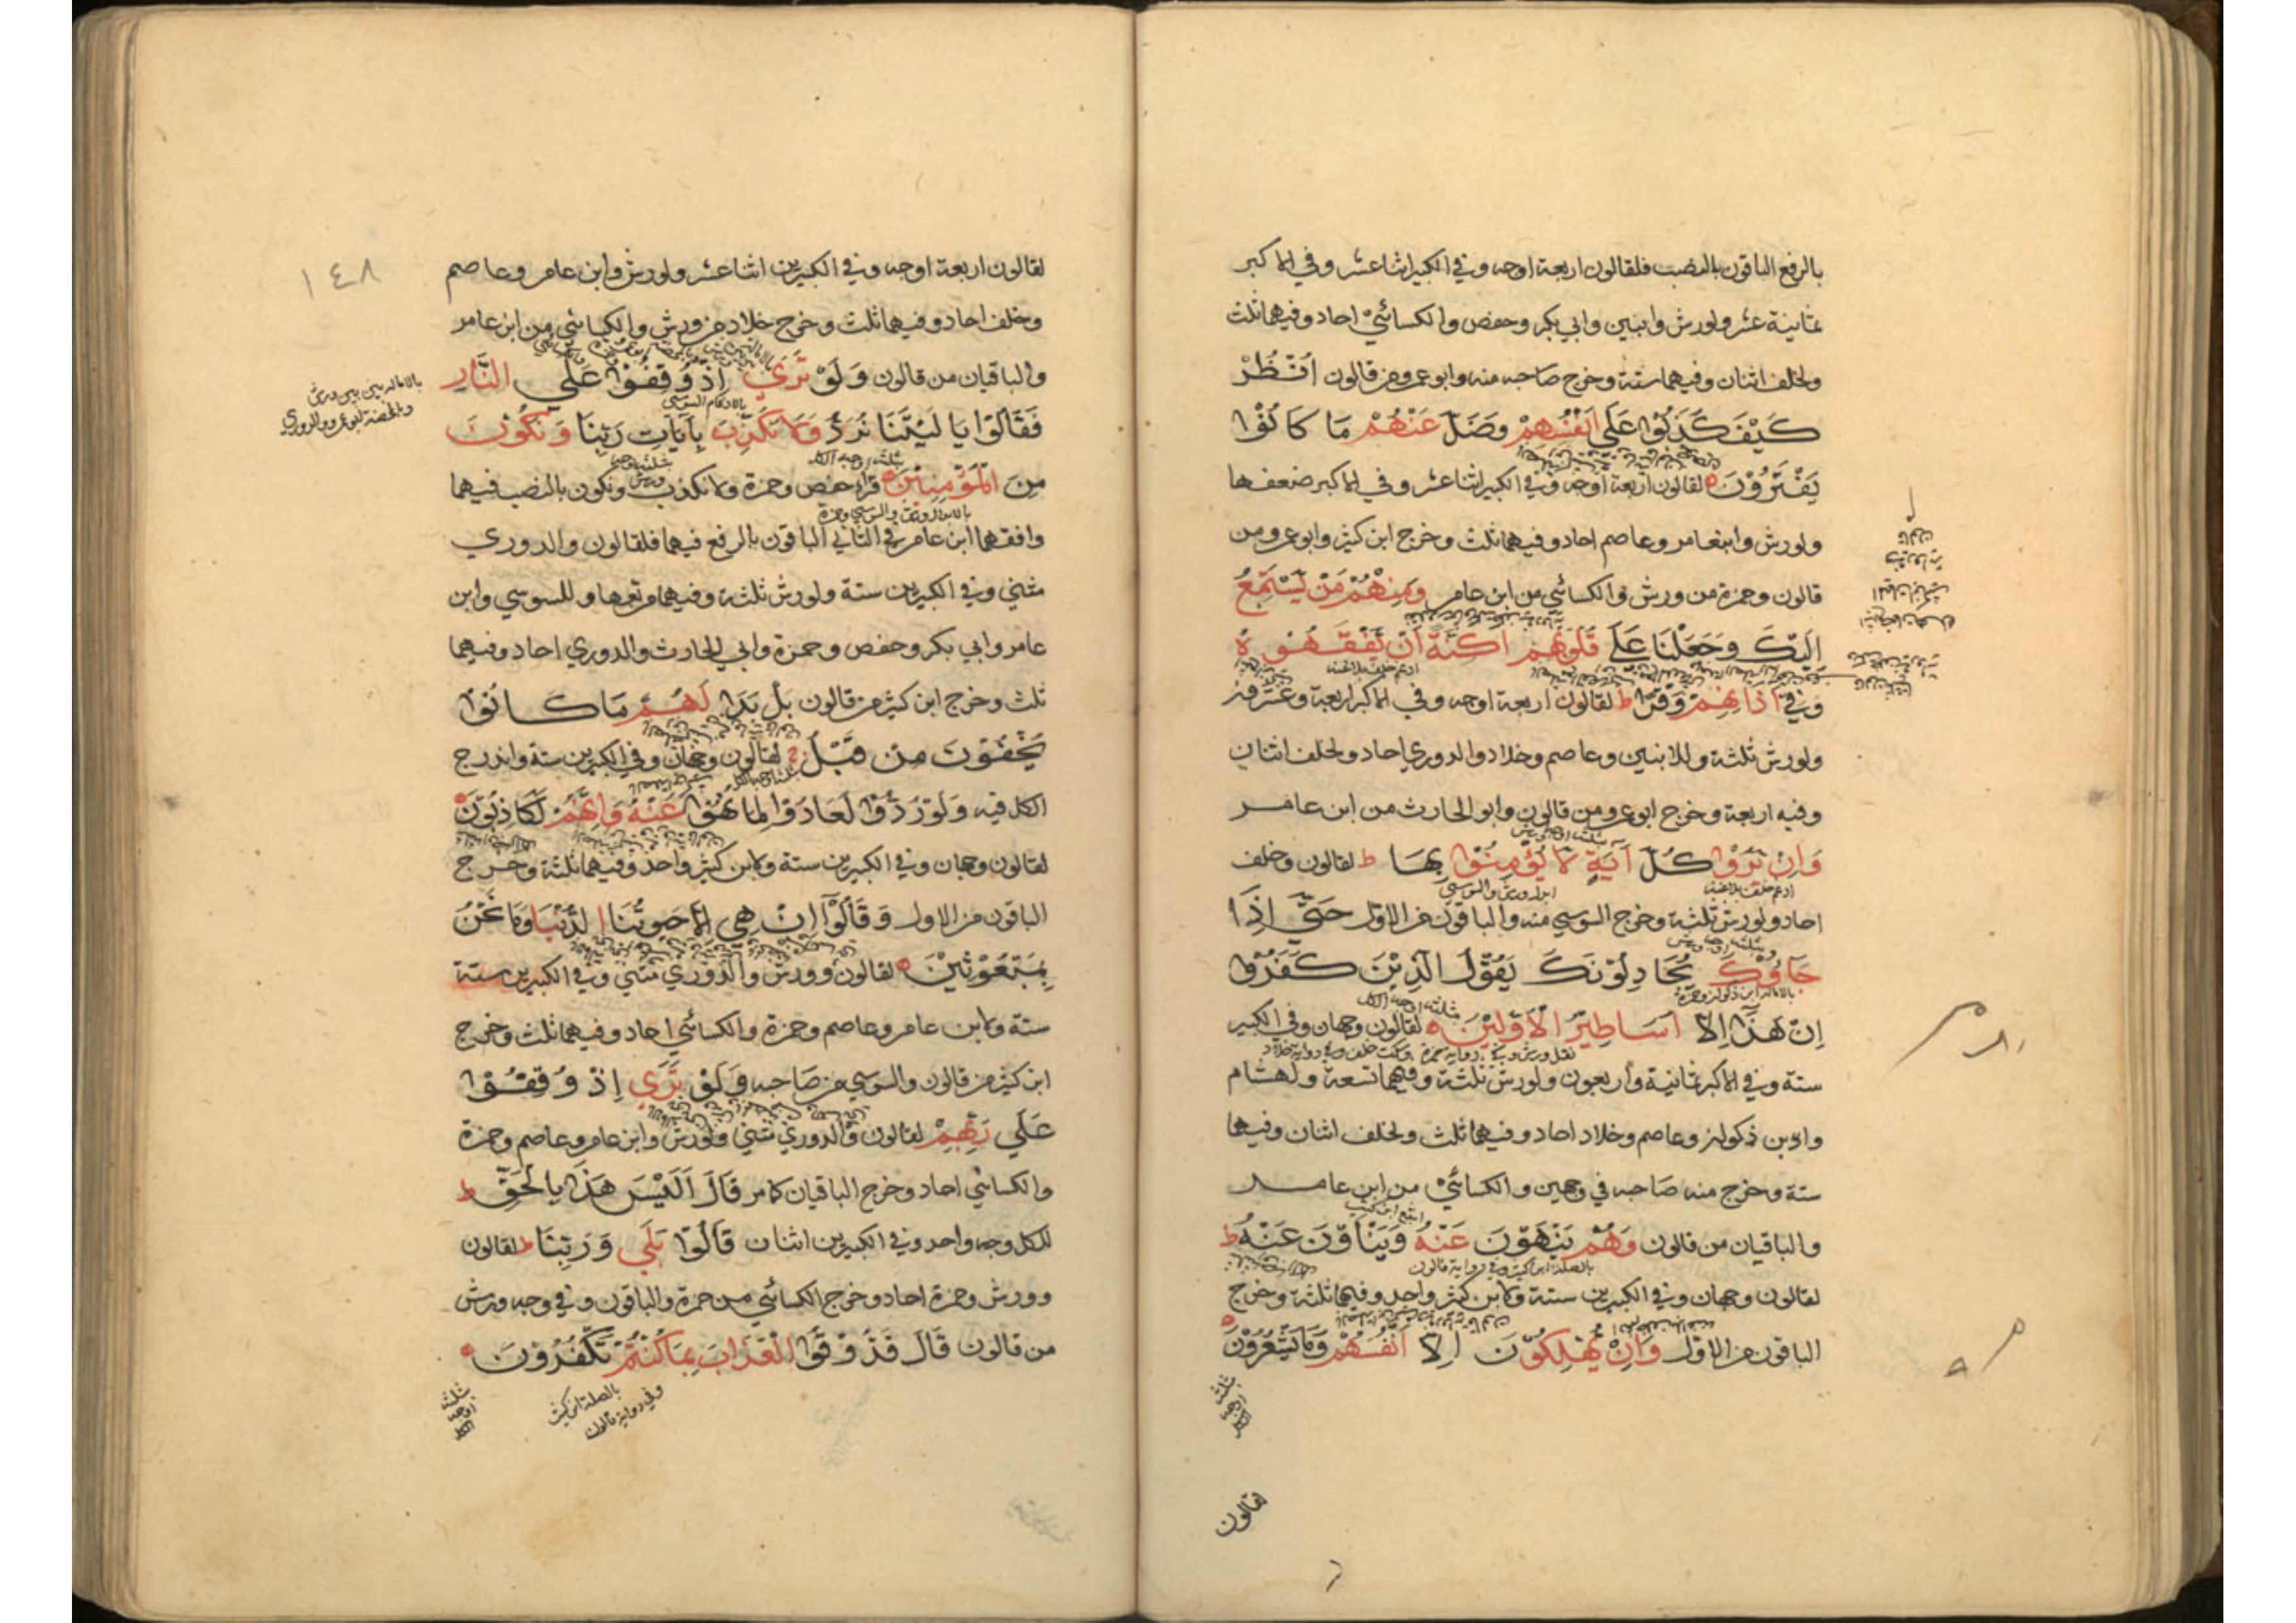 بالرفع الباقون بالنصب فلقالون اربعة اوجه وفي الكبير اثنا عشر وفي الاكبر
ثمانية عشر ولورش وابنين وابي بكر وحفص والكسائي احاد وفيهما ثلث
ولخلف اثنان وفيهما ستة وخرج صاحبه منه وابو عمرو من قالون اُنْظُرْ
كَيْفَ كَذَبُوْا عَلَي اَنْفُسِهِمْ وَضَلَّ عَنْهُمْ مَا كَانُوْا
يَفْتَرُوْنَ لقالون اربعة اوجه وفي الكبير اثنا عشر وفي الاكبر ضعفها
ولورش وابنعامر وعاصم احاد وفيهما ثلث وخرج ابن كثير وابو عمرو من
قالون وحمزة من ورش والكسائي من ابن عامر وَمِنْهُمْ مَنْ يَسْتَمِعُ
اِلَيْكَ وَجَعَلْنَا عَلَي قُلُوْبِهِمْ اَكِنَّةً اَنْ يَفْقَهُوْهُ
وَفِيْ اٰذَانِهِمْ وَقْرًا ط لقالون اربعة اوجه وفي الاكبر اربعة وعشرون
ولورش ثلثة وللابنين وعاصم وخلاد والدوري احاد ولخلف اثنان
وفيه اربعة وخرج ابو عمرو من قالون وابو الحارث من ابن عامر
وَاِنْ يَرَوْا كُلَّ اٰيَةٍ لَا يُؤْمِنُوْا بِهَا ط لقالون وخلف
احاد ولورش ثلثة وخرج السوسي منه والباقون من الاول حَتَّيٰ اِذَا
جَاؤُوْكَ يُجَادِلُوْنَكَ يَقُوْلُ الَّذِيْنَ كَفَرُوْا
اِنْ هٰذَا اِلَّا اَسَاطِيْرُ الْاَوَّلِيْنَ لقالون وجهان وفي الكبير
ستة وفي الاكبر ثمانية واربعون ولورش ثلثة وفيهما تسعة ولهشام
وابن ذكوان وعاصم وخلاد احاد وفيهما ثلث ولخلف اثنان وفيها
ستة وخرج منه صاحبه في وجهين والكسائي من ابن عامر
والباقيان من قالون وَهُمْ يَنْهَوْنَ عَنْهُ وَيَنْاَوْنَ عَنْهُ ط
لقالون وجهان وفي الكبيرين ستة ولابن كثير واحد وفيهما ثلثة وخرج
الباقون من الاول وَاِنْ يُهْلِكُوْنَ اِلَّا اَنْفُسَهُمْ وَمَا يَشْعُرُوْنَ
ثلثة اوجه الكل
لقالون
١٤٨
لقالون اربعة اوجه وفي الكبيرين اثنا عشر ولورش وابن عامر وعاصم
وخلف احاد وفيهما ثلث وخرج خلاد من ورش والكسائي من ابن عامر
والباقيان من قالون وَلَوْ تَرَيٰ اِذْ وُقِفُوْا عَلَي النَّارِ
بالاماله بين بين ورش
وبالمحضة ابو عمرو والدوري
بالادغام السوسي
فَقَالُوْا يَا لَيْتَنَا نُرَدُّ وَلَا نُكَذِّبَ بِاٰيَاتِ رَبِّنَا وَنَكُوْنَ
مِنَ الْمُؤْمِنِيْنَ قرأ حفص وحمزة ولا نكذب ونكون بالنصب فيهما
وافقهما ابن عامر في الثاني الباقون بالرفع فيهما فلقالون والدوري
مثني وفي الكبيرين ستة ولورش ثلثة وفيهما مر تعها وللسوسي وابن
عامر وابي بكر وحفص وحمزة وابي الحارث والدوري احاد وفيهما
ثلث وخرج ابن كثير من قالون بَلْ بَدَا لَهُمْ مَا كَانُوْا
يُخْفُوْنَ مِنْ قَبْلُ لقالون وجهان وفي الكبيرين ستة واندرج
الكل فيه وَلَوْ رُدُّوْا لَعَادُوْا لِمَا نُهُوْا عَنْهُ وَاِنَّهُمْ لَكَاذِبُوْنَ
لقالون وجهان وفي الكبيرين ستة ولابن كثير واحد وفيهما ثلثة وخرج
الباقون من الاول وَقَالُوْا اِنْ هِيَ اِلَّا حَيٰوتُنَا الدُّنْيَا وَمَا نَحْنُ
بِمَبْعُوْثِيْنَ لقالون وورش والدوري مثني وفي الكبيرين ستة
ستة ولابن عامر وعاصم وحمزة والكسائي احاد وفيهما ثلث وخرج
ابن كثير من قالون والسوسي من صاحبه وَلَوْ تَرَيٰ اِذْ وُقِفُوْا
عَلَي رَبِّهِمْ لقالون والدوري مثني ولورش وابن عامر وعاصم وحمزة
والكسائي احاد وخرج الباقيان كما مر قَالَ اَلَيْسَ هٰذَا بِالْحَقِّ ط
للكل وجه واحد وفي الكبيرين اثنان قَالُوْا بَلَي وَرَبِّنَا ط لقالون
وورش وحمزة احاد وخرج الكسائي من حمزة والباقون وفي وجه ورش
من قالون قَالَ فَذُوْقُوْا الْعَذَابَ بِمَا كُنْتُمْ تَكْفُرُوْنَ
بالصلة ابن كثير
وفي رواية قالون
ثلثة اوجه الكل